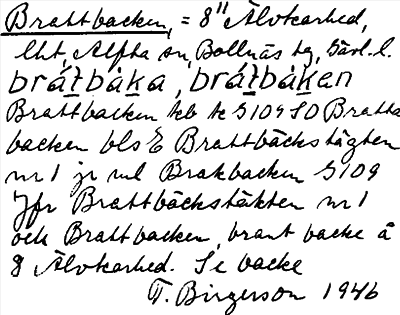 Brattbacken, = 8" Älvkarhed,
lht, Alfta sn, Bollnäs tg, Gävl. l.
brátbàka, brátbàken
Brattbacken kb tc G109 SO Bratta
backen bls E Brattbäckstägten
nr 1 jr ml Brakbacken G109
Jfr Brattbäckstäkten nr 1
och Brattbacken, brant backe å
8 Älvkarhed. Se backe
T. Birgerson 1946